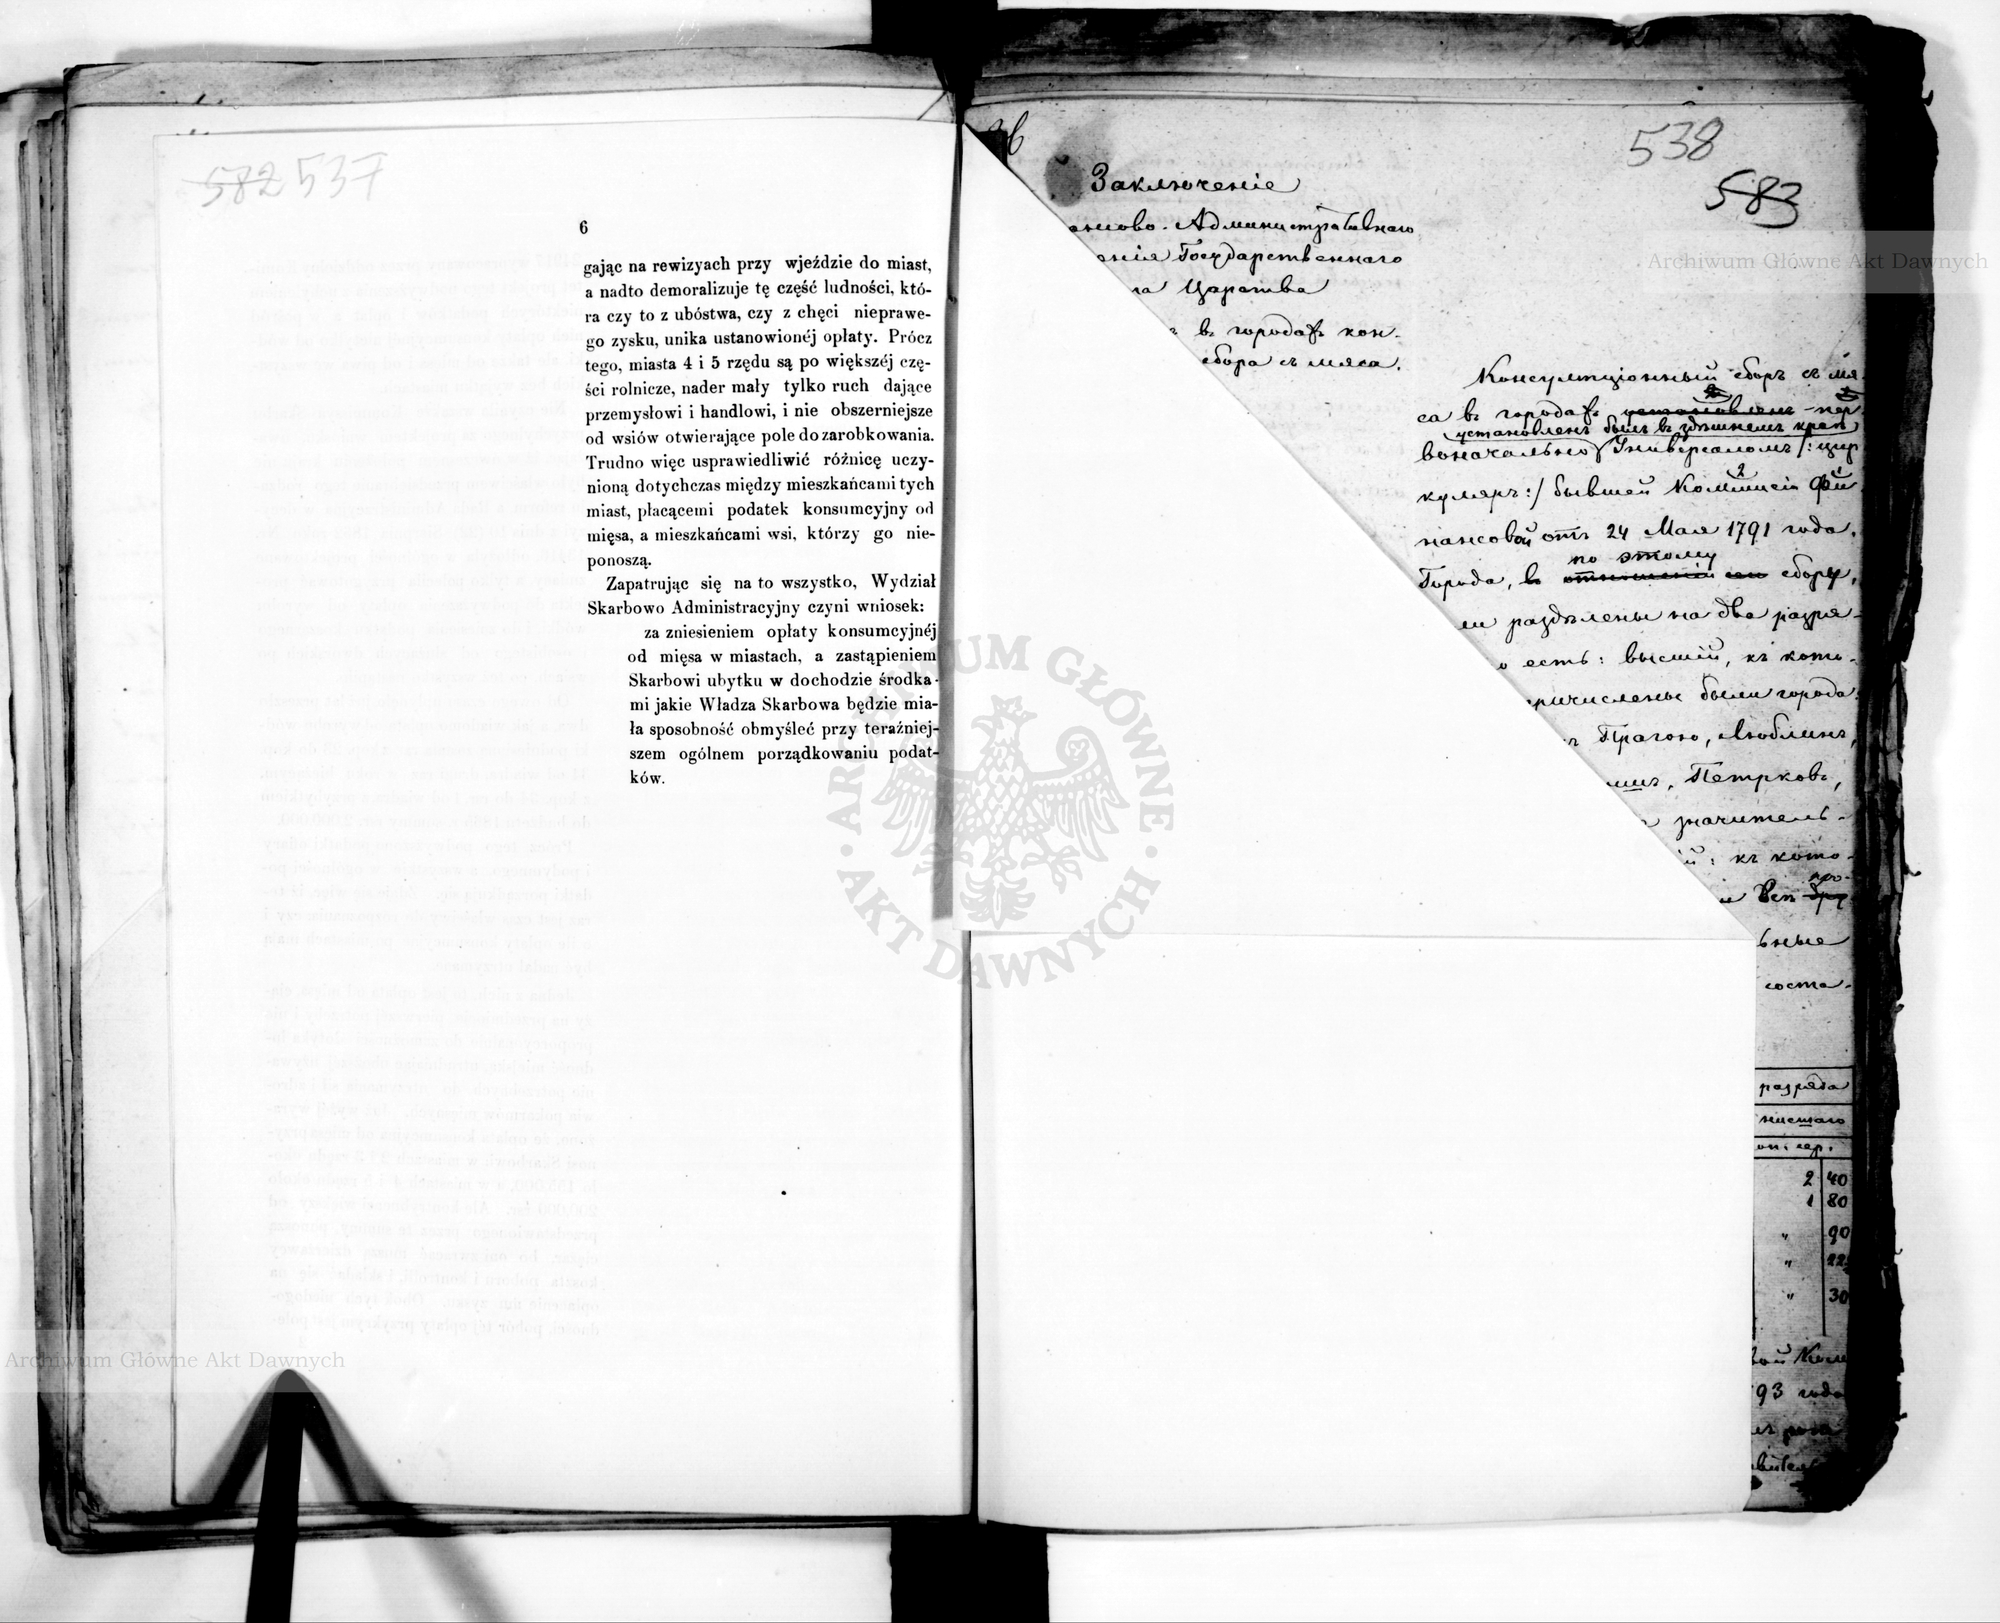 582 537
6
gając na rewizyach przy wjeździe do miast,
a nadto demoralizuje tę część ludności, któ-
ra czy to z ubóstwa, czy z chęci nieprawe-
go zysku, unika ustanowionéj opłaty. Prócz
tego, miasta 4 i 5 rzędu są po większéj czę-
ści rolnicze, nader mały tylko ruch dające
przemysłowi i handlowi, i nie obszerniejsze
od wsiów otwierające pole do zarobkowania.
Trudno więc usprawiedliwić różnicę uczy-
nioną dotychczas między mieszkańcami tych
miast, płacącemi podatek konsumcyjny od
mięsa, a mieszkańcami wsi, którzy go nie-
ponoszą.
Zapatrując się na to wszystko, Wydział
Skarbowo Administracyjny czyni wniosek:
za zniesieniem opłaty konsumcyjnéj
od mięsa w miastach, a zastąpieniem
Skarbowi ubytku w dochodzie środka-
mi jakie Władza Skarbowa będzie mia-
ła sposobność obmyśleć przy teraźniej-
szem ogólnem porządkowaniu podat-
ków.
538
583
Заключеніе
ансово-Административнаго
енія Государственнаго
та Царства
въ городахъ кон-
сбора съ мяса.
Консумпціонный сборъ съ мя-
са въ городахъ установленъ пер-
установленъ былъ въ здѣшнемъ краѣ
воначально Универсаломъ /: цир
куляръ :/ бывшей Коммисіи Фи
нансовой отъ 24 Мая 1791 года.
по этому
Города, въ отношеніи сбору,
ли раздѣлены на два разря-
о есть: высшій, къ кото-
причислены были города:
Прагою, Люблинъ,
Петрковъ,
значитель-
къ кото-
про-
и Всѣ
ьные
соста-
разряда
низшаго
оп. сер.
2 40
1 80
" 90
" 22
" 30
вой Ком
93 года
Archiwum Główne Akt Dawnych
Archiwum Główne Akt Dawnych
ARCHIWUM GŁÓWNE · AKT DAWNYCH ·